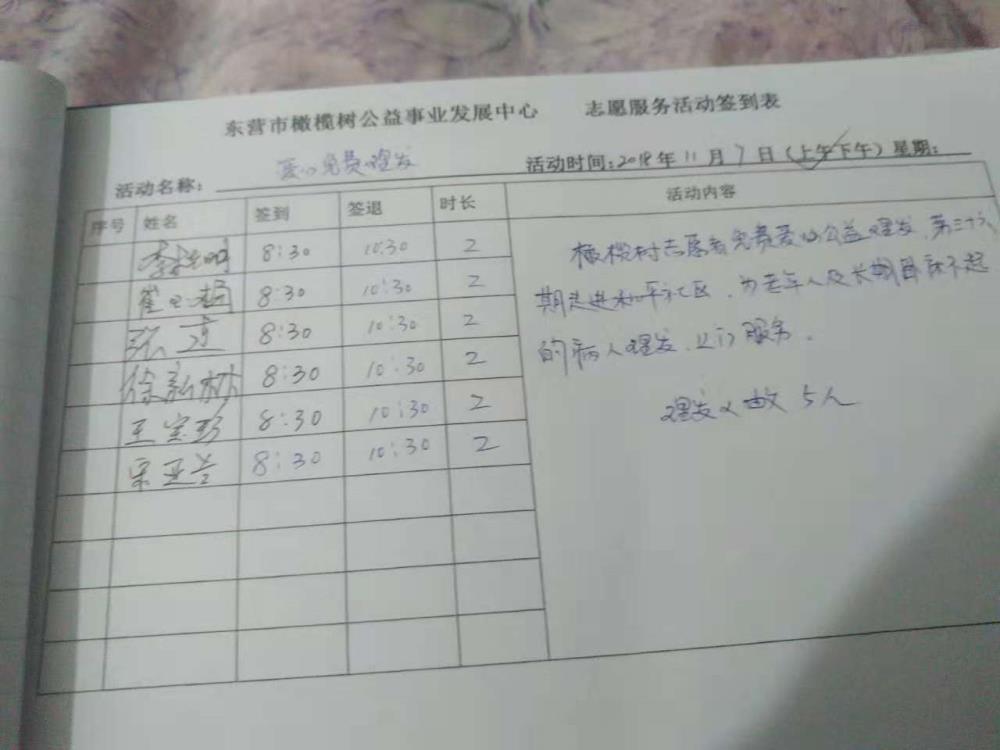 东营市橄榄树公益事业发展中心 志愿服务活动签到表
活动名称: 爱心免费理发 活动时间:2018年11月7日(上午下午)星期:
序号 姓名 签到 签退 时长 活动内容
8:30 10:30 2
崔 8:30 10:30 2
张 8:30 10:30 2
徐新林 8:30 10:30 2
王宝珍 8:30 10:30 2
宋亚兰 8:30 10:30 2
橄榄树志愿者免费爱心公益理发,第三十六
期走进和平社区,为老年人及长期卧床不起
的病人理发,上门服务。
理发 5人